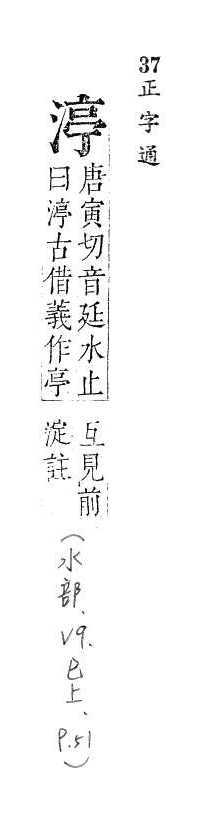 37 正字通
渟
唐寅切音廷水止
曰渟古借義作亭
互見前
淀註
(水部、V9.巳上、P.51)